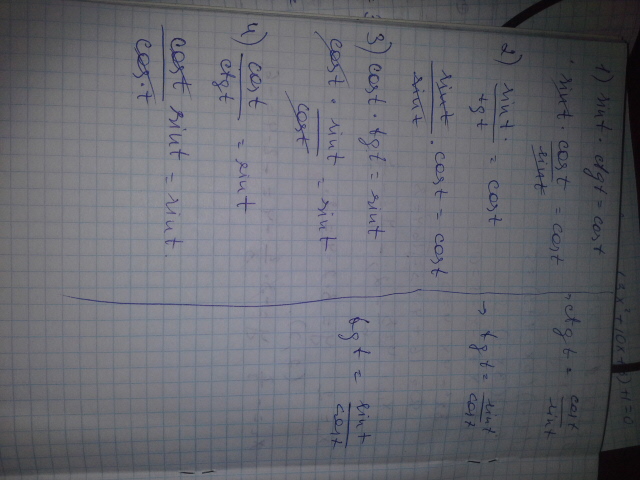 1) sint · ctgt = cost
· sint · cost/sint = cost → ctgt = cost/sint
2) sint/tgt = cost → tgt = sint/cost
sint/sint · cost = cost
3) cost · tgt = sint tgt = sint/cost
cost · sint/cost = sint
4) cost/ctgt = sint
cost/cost sint = sint